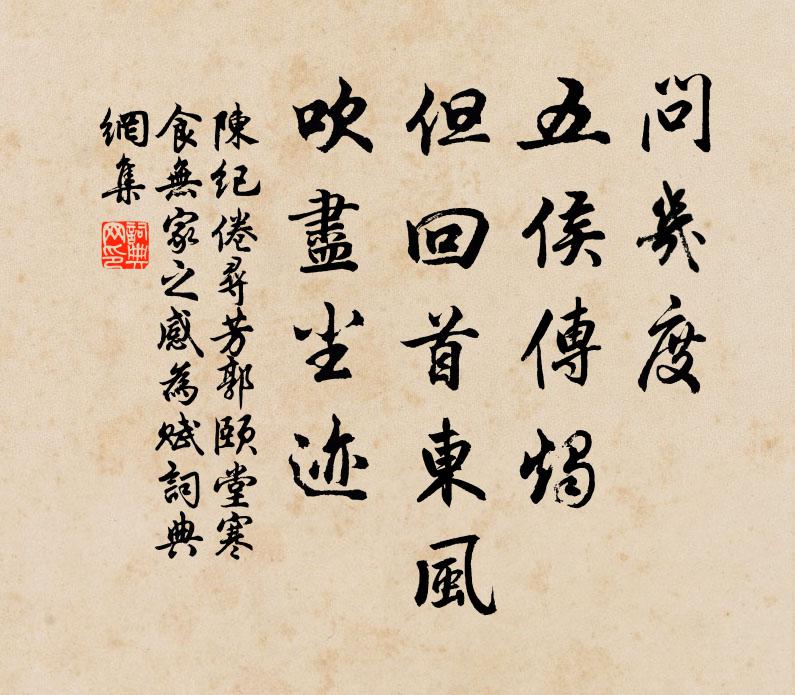 問幾度
五侯傳燭
但回首東風
吹盡尘迹
陳紀倦尋芳郭頤堂寒
食無家之感為賦詞典
網集
詞典
网印